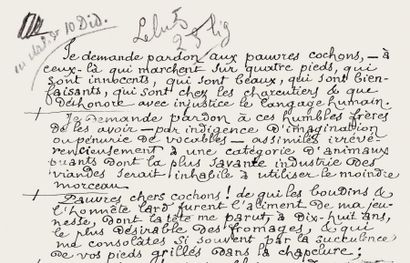 Je demande pardon aux pauvres cochons, — à
ceux-là qui marchent sur quatre pieds, qui
sont innocents, qui sont beaux, qui sont bien-
faisants, qui sont chez les charcutiers & que
déshonore avec injustice le langage humain.
Je demande pardon à ces humbles frères
de les avoir — par indigence d'imagination
ou pénurie de vocables — assimilés irrévé-
rencieusement à une catégorie d'animaux
puants dont la plus savante industrie des
viandes serait inhabile à utiliser le moindre
morceau.
Pauvres chers cochons! de qui les boudins &
l'honnête lard furent l'aliment de ma jeu-
nesse, dont la tête me parut, à dix-huit ans,
le plus désirable des fromages, & qui
me consolâtes si souvent par la succulence
de vos pieds grillés dans la chapelure;